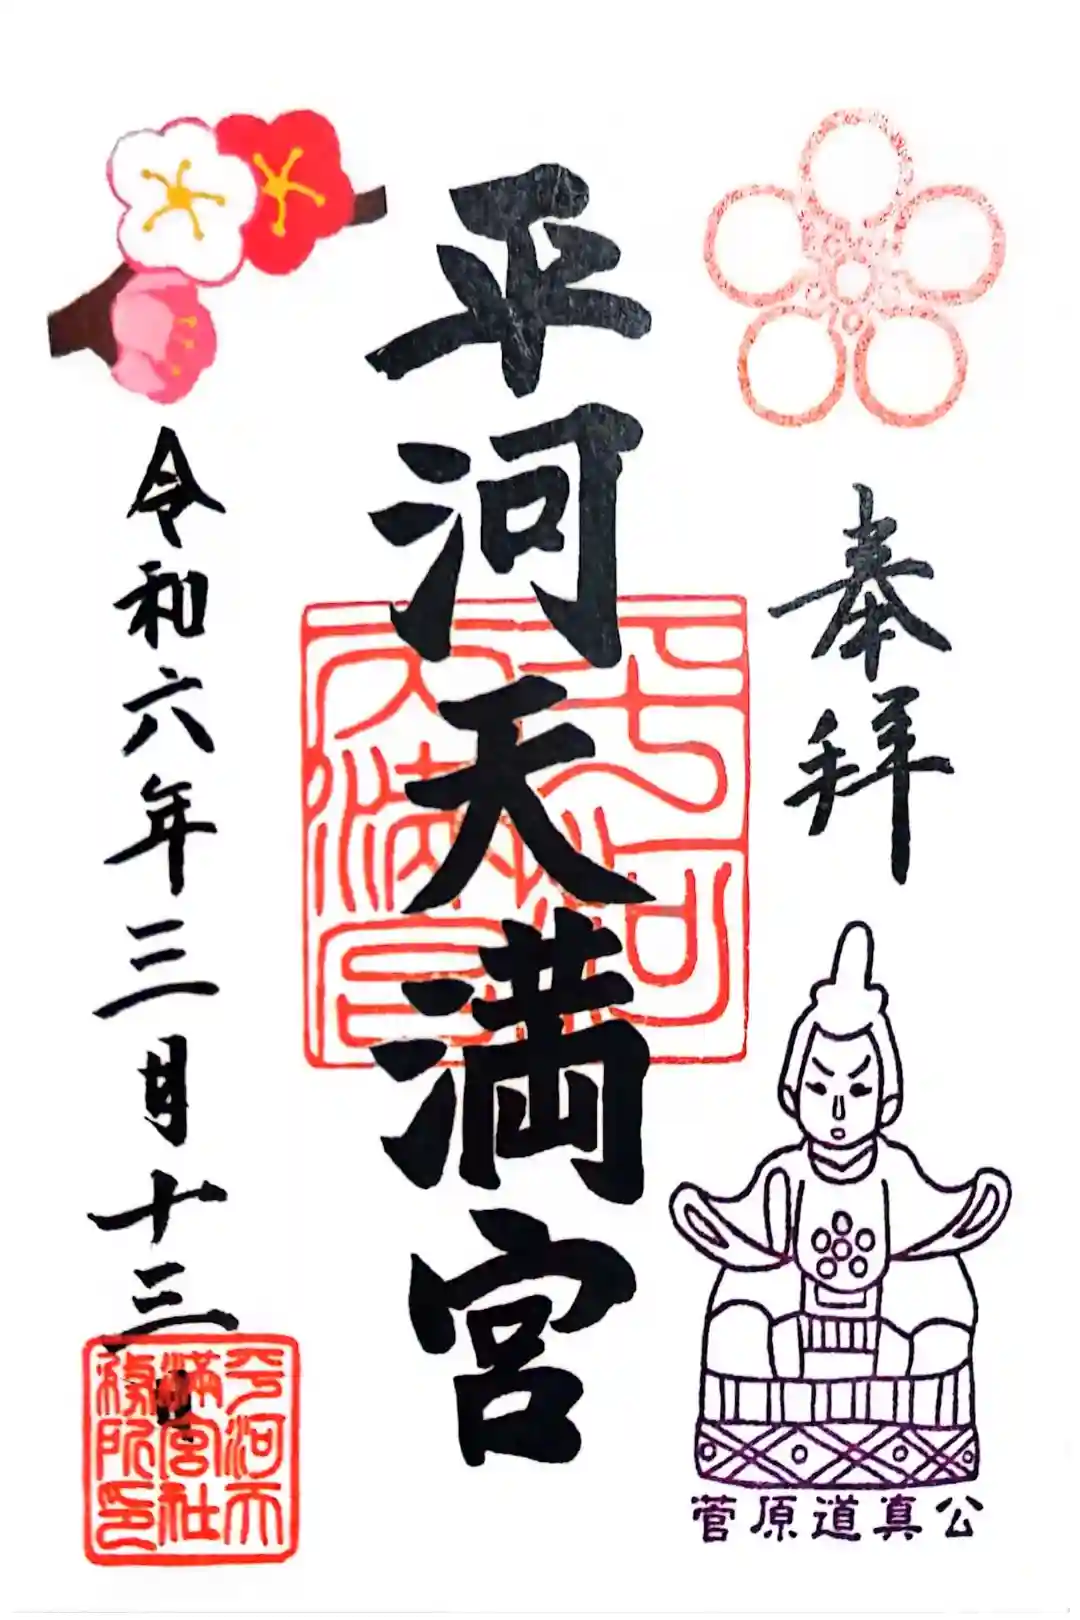 奉拝
菅原道真公
平河天満宮
平河天満宮
令和六年三月十三日
平河天
満宮社
務所印